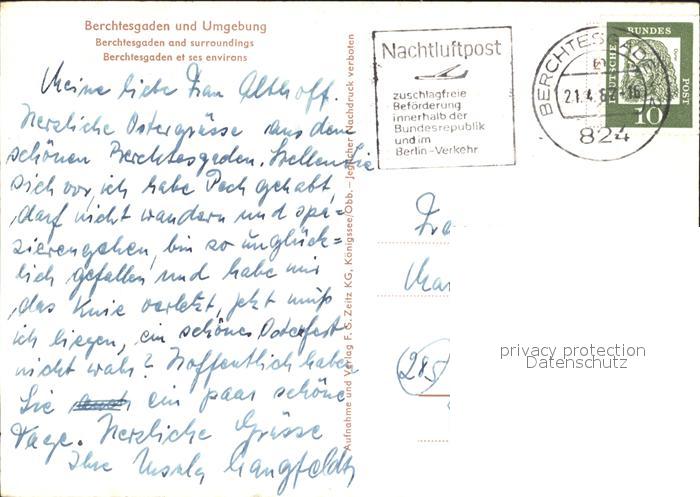 Berchtesgaden und Umgebung
Berchtesgaden and surroundings
Berchtesgaden et ses environs
Meine liebe Frau Althoff.
Herzliche Ostergrüsse aus dem
schönen Berchtesgaden. Stellen Sie
sich vor, ich habe Pech gehabt,
darf nicht wandern und spa=
zierengehen, bin so unglück=
lich gefallen und habe mir
das Knie verletzt, jetzt muß
ich liegen, ein schönes Osterfest
nicht wahr? Hoffentlich haben
Sie ein paar schöne
Tage. Herzliche Grüsse
Ihre Ursula Langfeldt
Aufnahme und Verlag F. G. Zeitz KG, Königssee/Obb. – Jeglicher Nachdruck verboten
Nachtluftpost
zuschlagfreie
Beförderung
innerhalb der
Bundesrepublik
und im
Berlin-Verkehr
BERCHTESGADEN
21.4.6
824
DEUTSCHE BUNDES POST
10
Fra
(285
privacy protection
Datenschutz